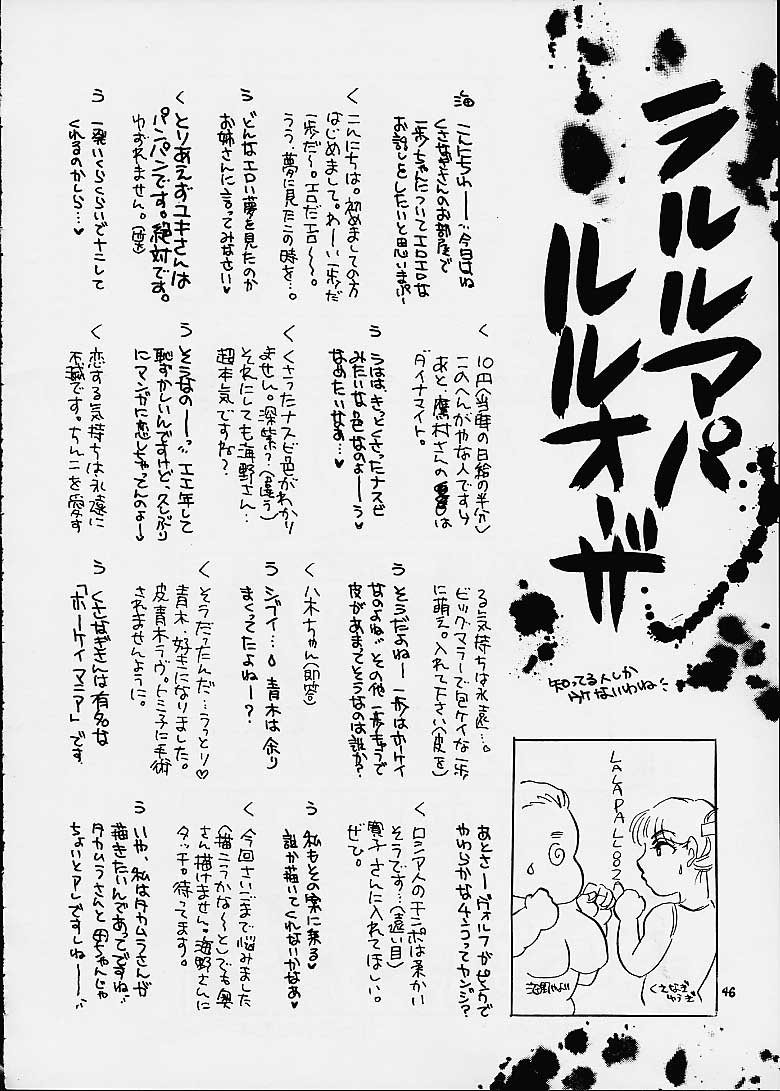 ラルルアパ
ルルオーザ
知ってる人しか
ウケないわね
海 こんにちわー 今日はね
くさなぎさんのお部屋で
一歩ちゃんについてエロエロな
お話しをしたいと思いまぷー
く こんにちは。初めましての方
はじめまして。わーい一歩だ
一歩だ〜。エロだエロ〜〜。
うう、夢に見たこの時を…。
う どんなエロい夢を見たのか
お姉さんに言ってみなさい♥
く とりあえずユキさんは
パンパンです。絶対です。
ゆずれません。
う 一発いくらくらいでナニして
くれるのかしら…♥
く 10円(当時の日給の半分)
このへんがやな人ですう
あと、鷹村さんの
ダイナマイト。
う うはは、きっとくさったナスビ
みたいな色なのよーう
なめたいなあ…♥
く くさったナスビ色がわかり
ません。深紫?(違う)
それにしても海野さん…
超本気ですね?
う そうなのーっ エエ年して
恥ずかしいんですけど、久しぶり
にマンガに恋しちゃってんのよー
く 恋する気持ちは永遠に
不滅です。ちんこを愛す
る気持ちは永遠…。
ビッグマラーで包ケイな一歩
に萌え。入れて下さい(皮を)
う そうだよねー 一歩はホーケイ
なのよね その他一歩もうで
皮があまってそうなのは誰か?
く 八木ちゃん(即答)
う シブイ…。青木は余り
まくってたよねー?
く そうだったんだ…うっとり♡
青木、好きになりました。
皮青木ラヴ。トミ子に手術
されませんように。
う くさなぎさんは有名な
「ホーケイマニア」です
あとさーヴォルフがピンクで
やわらかなチンコってカンジ?
く ロシア人のチンポは柔かい
そうです…(遠い目)
寛子さんに入れてほしい。
ぜひ。
う 私もその案に来る
誰か描いてくれないかなあ♥
く 今回さいごまで悩みました
(描こうかな〜と)でも奥
さん描けません。海野さんに
タッチ。待ってます。
う いや、私はタカムラさんが
描きたいんであってですね
タカムラさんと母ちゃんじゃ
ちょいとアレですしねーー
LALAPALOOZA
くさなぎ
ゆうぎ
46